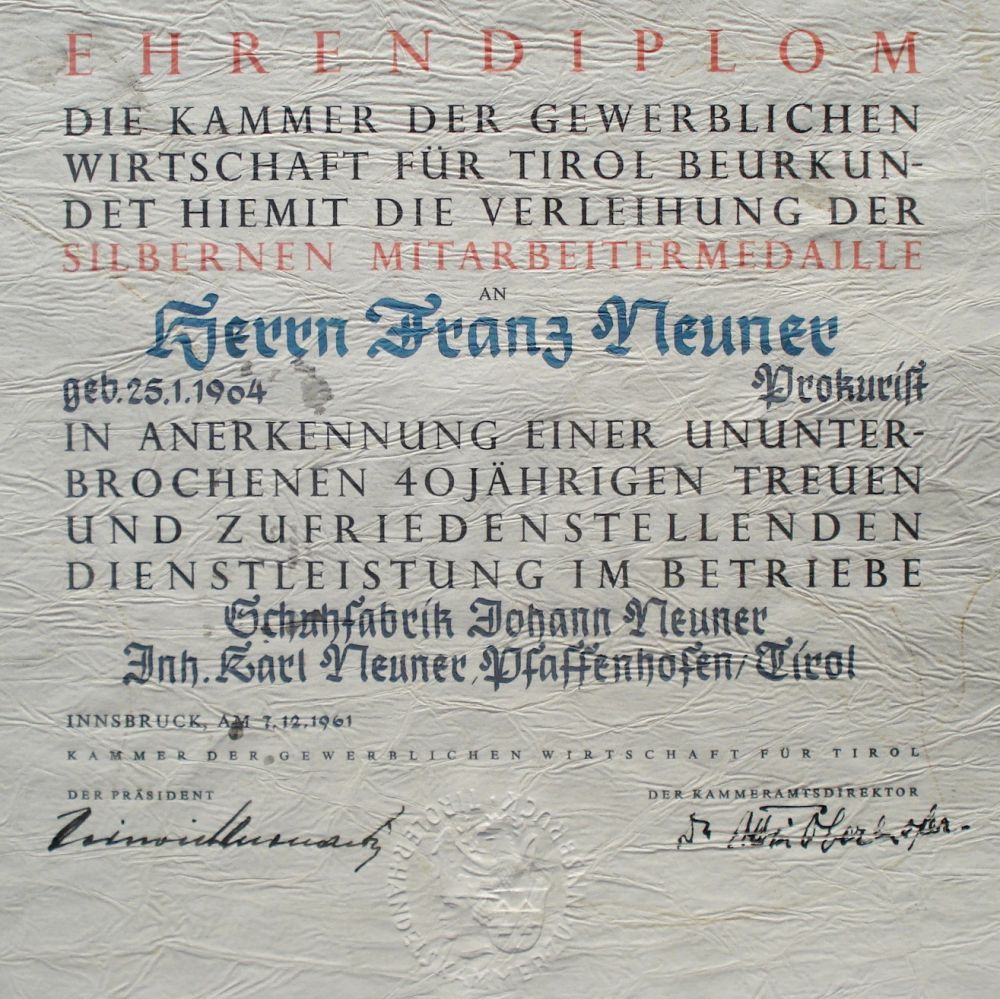 EHRENDIPLOM
DIE KAMMER DER GEWERBLICHEN
WIRTSCHAFT FÜR TIROL BEURKUN-
DET HIEMIT DIE VERLEIHUNG DER
SILBERNEN MITARBEITERMEDAILLE
AN
Herrn Franz Neuner
geb. 25.1.1904 Prokurist
IN ANERKENNUNG EINER UNUNTER-
BROCHENEN 40 JÄHRIGEN TREUEN
UND ZUFRIEDENSTELLENDEN
DIENSTLEISTUNG IM BETRIEBE
Schuhfabrik Johann Neuner
Inh. Karl Neuner, Pfaffenhofen/Tirol
INNSBRUCK, AM 7.12.1961
KAMMER DER GEWERBLICHEN WIRTSCHAFT FÜR TIROL
DER PRÄSIDENT DER KAMMERAMTSDIREKTOR
Dr